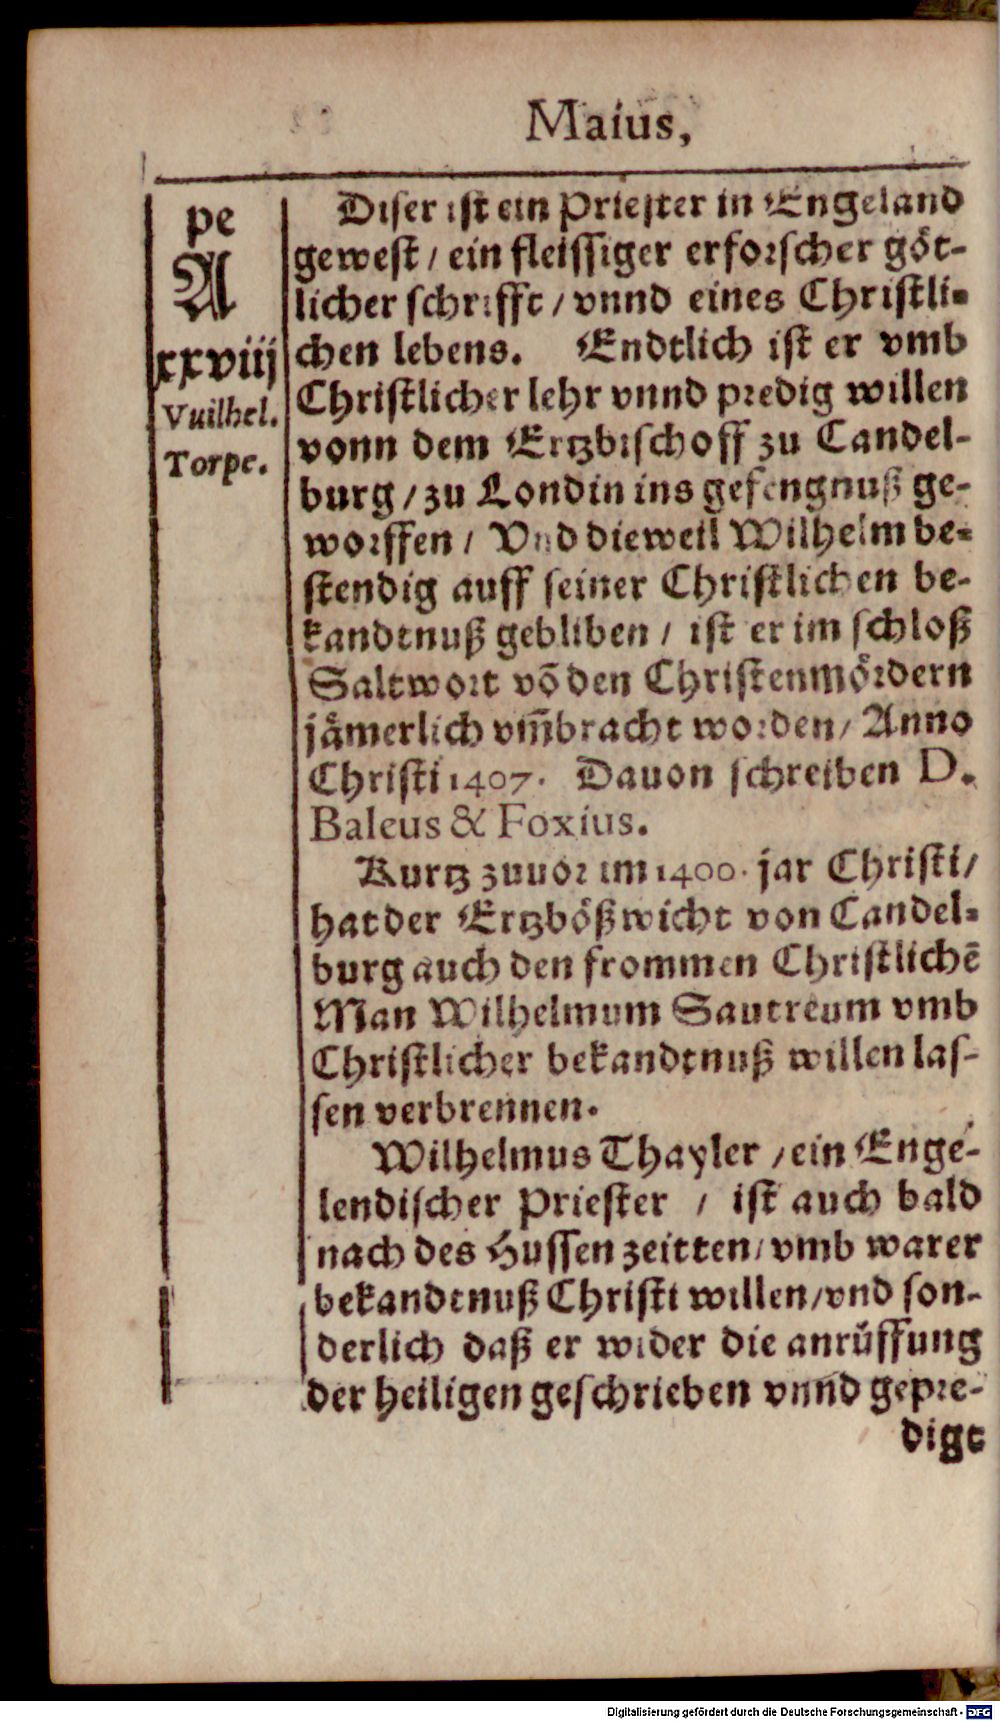 Maius,
pe
A
xxviij
Vuilhel.
Torpe.
Diser ist ein Priester in Engeland
gewest / ein fleissiger erforscher göt-
licher schrifft / vnnd eines Christli-
chen lebens. Endtlich ist er vmb
Christlicher lehr vnnd predig willen
vonn dem Ertzbischoff zu Candel-
burg / zu Londin ins gefengnuß ge-
worffen / Vnd dieweil Wilhelm be-
stendig auff seiner Christlichen be-
kandtnuß gebliben / ist er im schloß
Saltwort võ den Christenmördern
jämerlich vm̃bracht worden / Anno
Christi 1407. Dauon schreiben D.
Baleus & Foxius.
Kurtz zuuor im 1400. jar Christi /
hat der Ertzbößwicht von Candel-
burg auch den frommen Christlichẽ
Man Wilhelmum Sautreum vmb
Christlicher bekandtnuß willen las-
sen verbrennen.
Wilhelmus Thayler / ein Enge-
lendischer Priester / ist auch bald
nach des Hussen zeitten / vmb warer
bekandtnuß Christi willen / vnd son-
derlich daß er wider die anrüffung
der heiligen geschrieben vnnd gepre-
digt
Digitalisierung gefördert durch die Deutsche Forschungsgemeinschaft - DFG